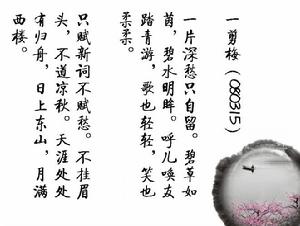 一剪梅（080315）
一片深愁只自留。碧草如
茵，碧水明眸。呼儿唤友
踏青游，歌也轻轻，笑也
柔柔。
只赋新词不赋愁。不挂眉
头，不道凉秋。天涯处处
有归舟，日上东山，月满
西楼。